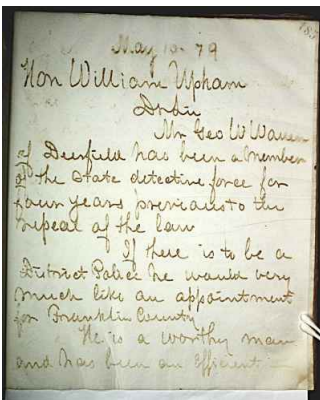 May 10. 79
Hon William Upham
Dr Sir
Mr Geo W
of Deerfield has been a member
of the State detective force for
four years previous to the
repeal of the law
If there is to be a
District Police he would very
much like an appointment
for Franklin County
He is a worthy man
and has been an Efficient